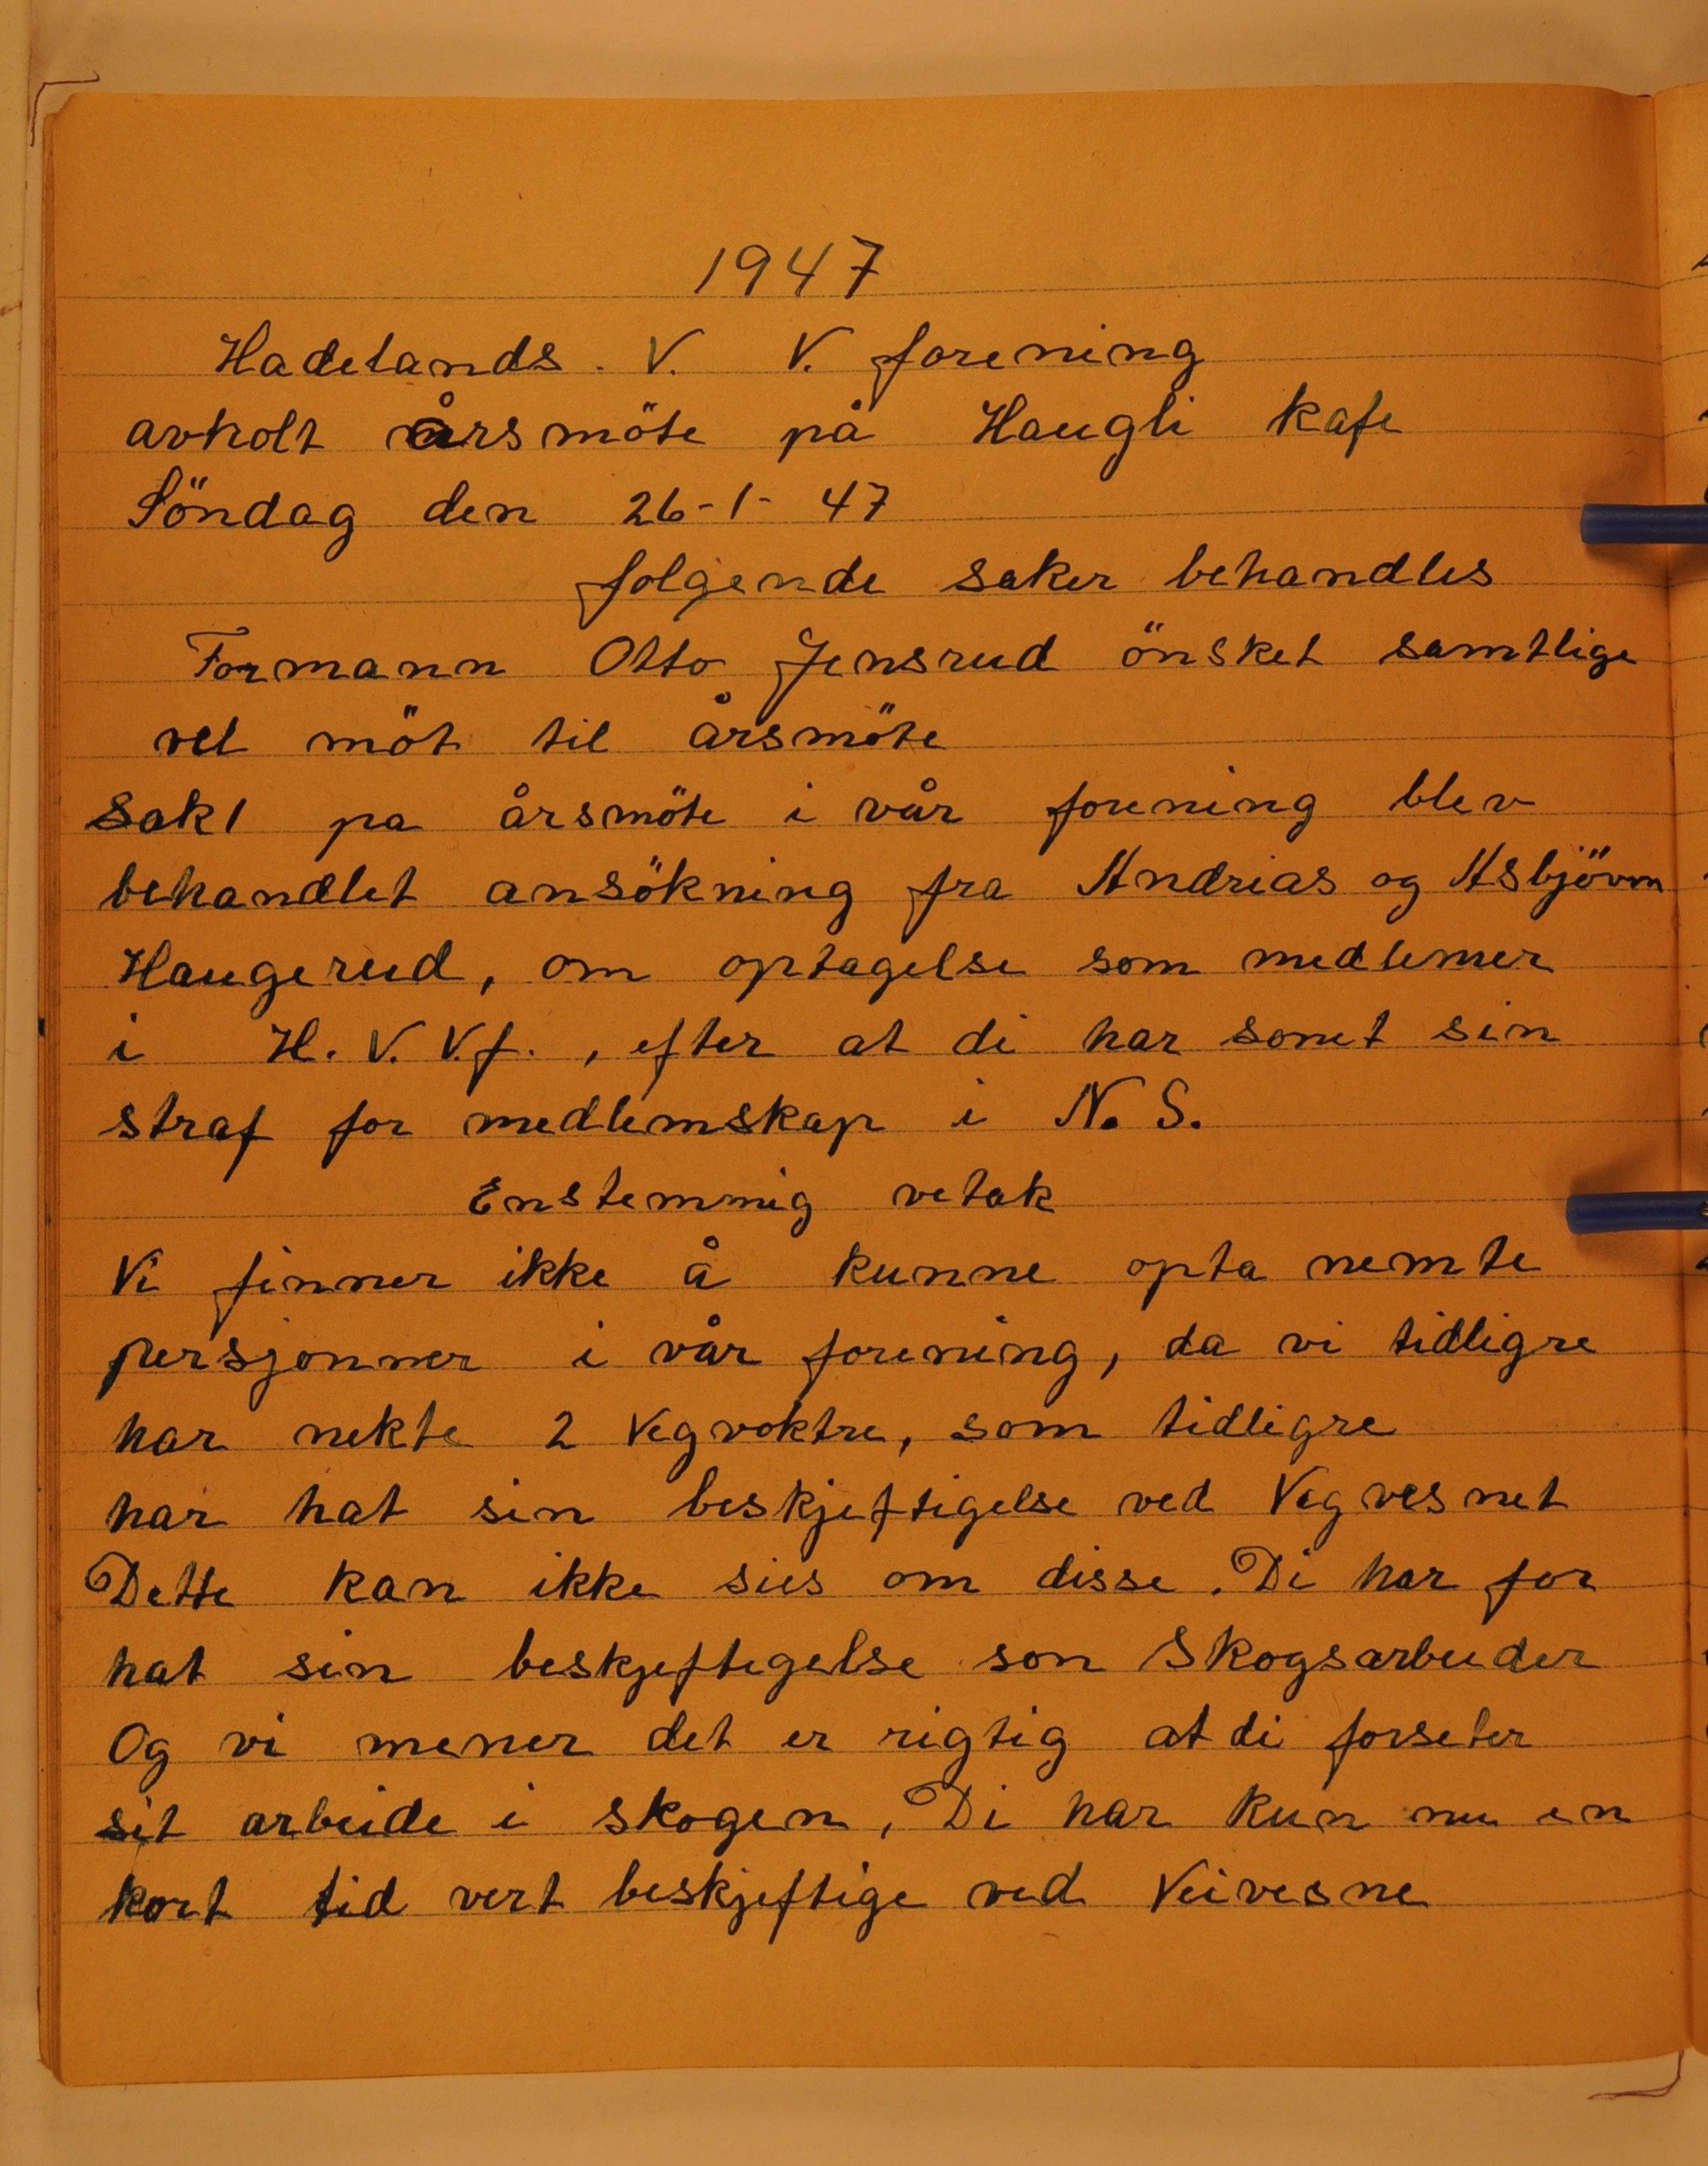 1947
Hadelands. V. V. forening
avholt årsmöte på Haugli kafe
Söndag den 26-1- 47
folgende saker behandles
Formann Otto Jensrud önsket samtlige
vel möt til årsmöte
Sak 1 pa årsmöte i vår forening blev
behandlet ansökning fra Andrias og Asbjövrn
Haugerud, om optagelse som medlemer
i H. V. V. f. , efter at di har sonet sin
straf for medlemskap i N. S.
Enstemmig vetak
Vi finner ikke å kunne opta nemte
persjonner i vår forening, da vi tidligre
har nekte 2 Vegvoktre, som tidligre
har hat sin beskjeftigelse ved Vegvesnet
Dette kan ikke sies om disse. Di har for
hat sin beskjeftigelse son Skogsarbeider
Og vi mener det er rigtig at di forseter
sit arbeide i skogen, Di har kun nu en
kort tid vert beskjeftige ved Veivesne